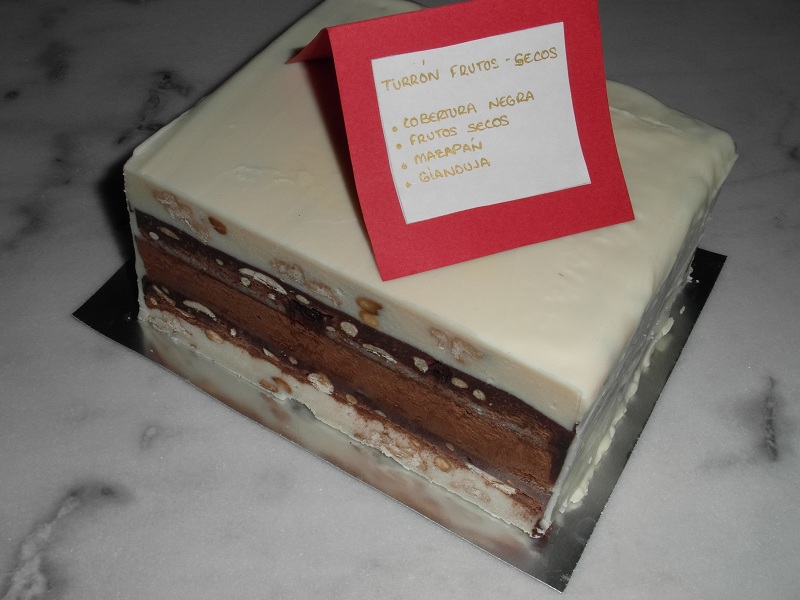 TURRÓN FRUTOS - SECOS
• COBERTURA NEGRA
• FRUTOS SECOS
• MAZAPÁN
• GIANDUJA